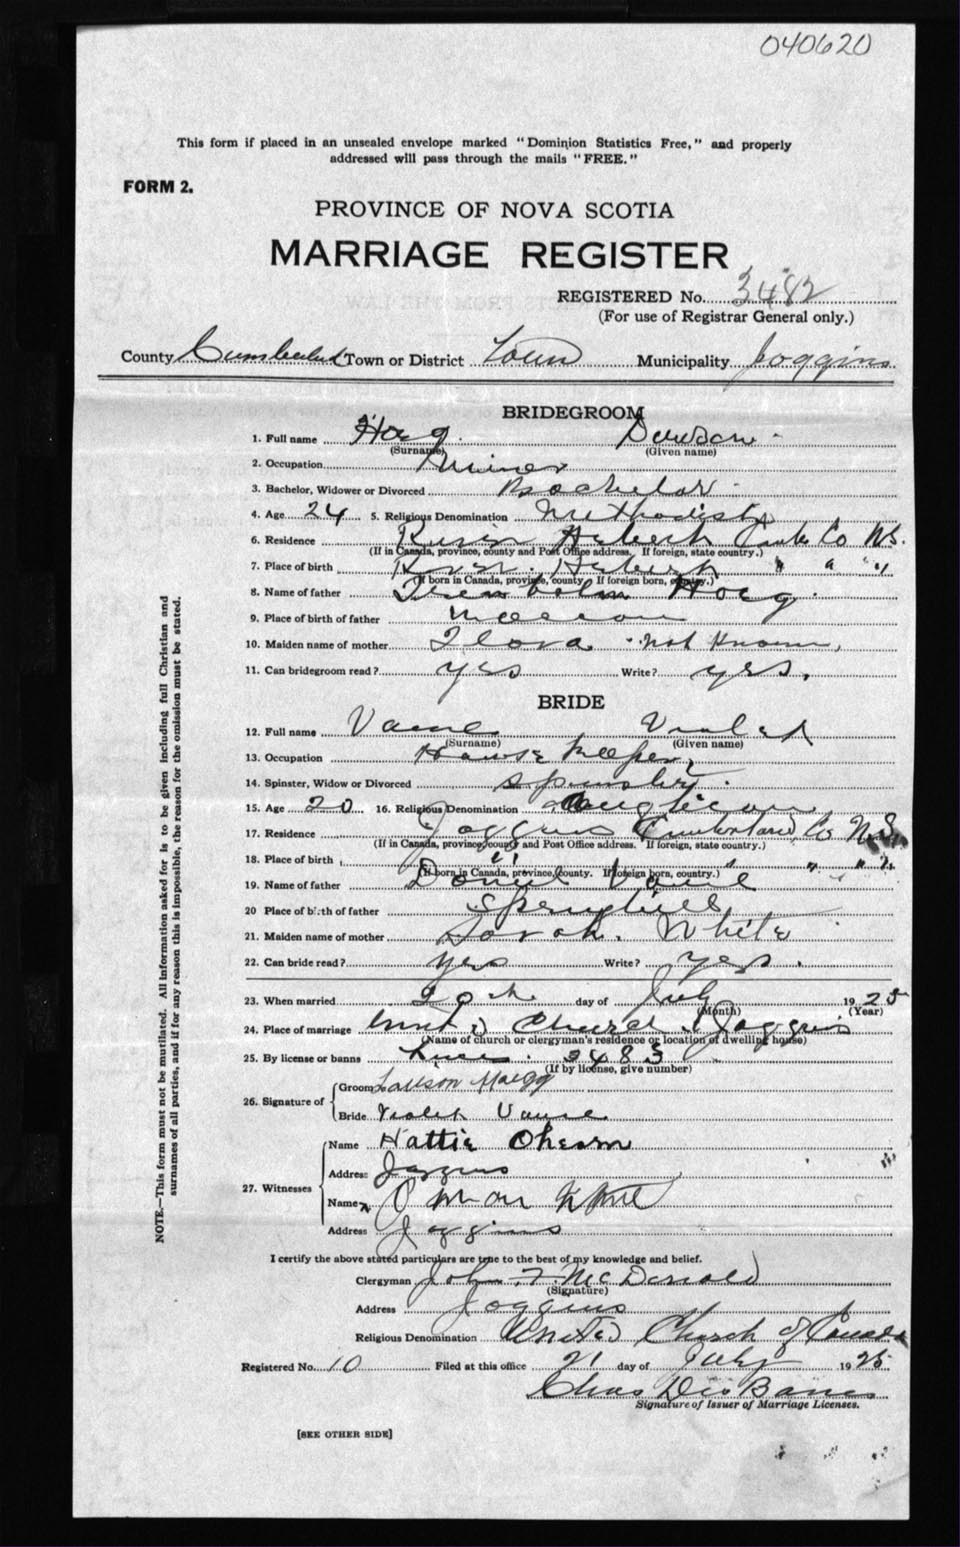 040620
This form if placed in an unsealed envelope marked "Dominion Statistics Free," and properly
addressed will pass through the mails "FREE."
FORM 2.
PROVINCE OF NOVA SCOTIA
MARRIAGE REGISTER
REGISTERED No. 3482
(For use of Registrar General only.)
County Cumberland Town or District Town Municipality Joggins
BRIDEGROOM
1. Full name Hoeg Dawson
(Surname) (Given name)
2. Occupation Miner
3. Bachelor, Widower or Divorced Bachelor
4. Age 24 5. Religious Denomination Methodist
6. Residence River Hebert Cumb Co N.S.
(If in Canada, province, county and Post Office address. If foreign, state country.)
7. Place of birth River Hebert " " "
(If born in Canada, province, county. If foreign born, country.)
8. Name of father Hoeg
9. Place of birth of father Maccan
10. Maiden name of mother Flora not known
11. Can bridegroom read? yes Write? yes.
BRIDE
12. Full name Vance Violet
(Surname) (Given name)
13. Occupation House Keeper
14. Spinster, Widow or Divorced spinster
15. Age 20 16. Religious Denomination Anglican
17. Residence Joggins Cumberland Co N.S.
(If in Canada, province, county and Post Office address. If foreign, state country.)
18. Place of birth " " " " "
(If born in Canada, province, county. If foreign born, country.)
19. Name of father Daniel Vance
20 Place of birth of father Springhill
21. Maiden name of mother Sarah. White
22. Can bride read? yes Write? yes.
23. When married 20th day of July 1925
(Month) (Year)
24. Place of marriage United Church Joggins
(Name of church or clergyman's residence or location of dwelling house)
25. By license or banns 3483
(If by license, give number)
26. Signature of Groom Hoegg
Bride Violet Vance
27. Witnesses Name Hattie Ohearn
Address Joggins
Name
Address Joggins
I certify the above stated particulars are true to the best of my knowledge and belief.
Clergyman John F. McDonald
(Signature)
Address Joggins
Religious Denomination United Church of Canada
Registered No. 10 Filed at this office 21 day of July 1925
Chas DesBarres
Signature of Issuer of Marriage Licenses.
[SEE OTHER SIDE]
NOTE.—This form must not be mutilated. All information asked for is to be given including full Christian and
surnames of all parties, and if for any reason this is impossible, the reason for the omission must be stated.